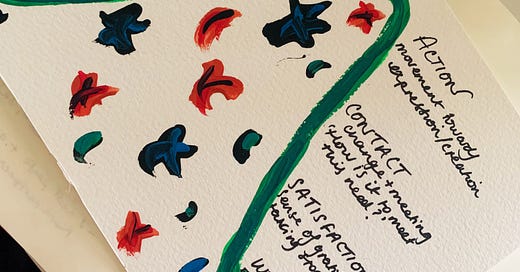 ACTION
movement towards
expression/creation
CONTACT
change + meeting
'How is it to meet
this need?'
SATISFACTION
sense of
taking
W